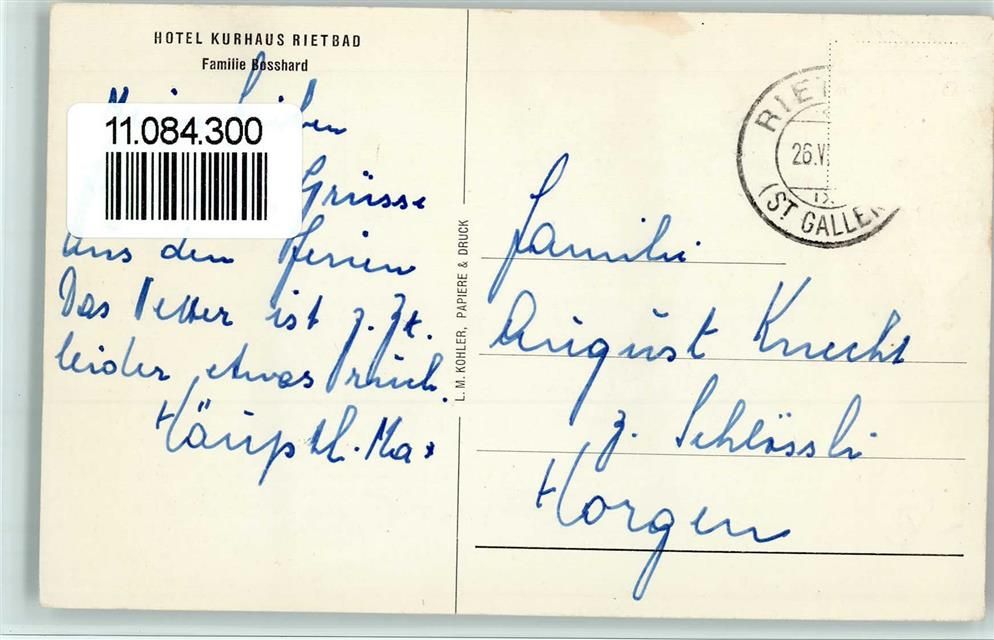 HOTEL KURHAUS RIETBAD
Familie Bosshard
11.084.300
Grüsse
aus den Ferien
Das Wetter ist z. Zt.
leider etwas
Max
L. M. KOHLER, PAPIERE & DRUCK
RIET
26.V
IX
(ST GALLEN
Familie
August Knecht
z. Schlössli
Horgen